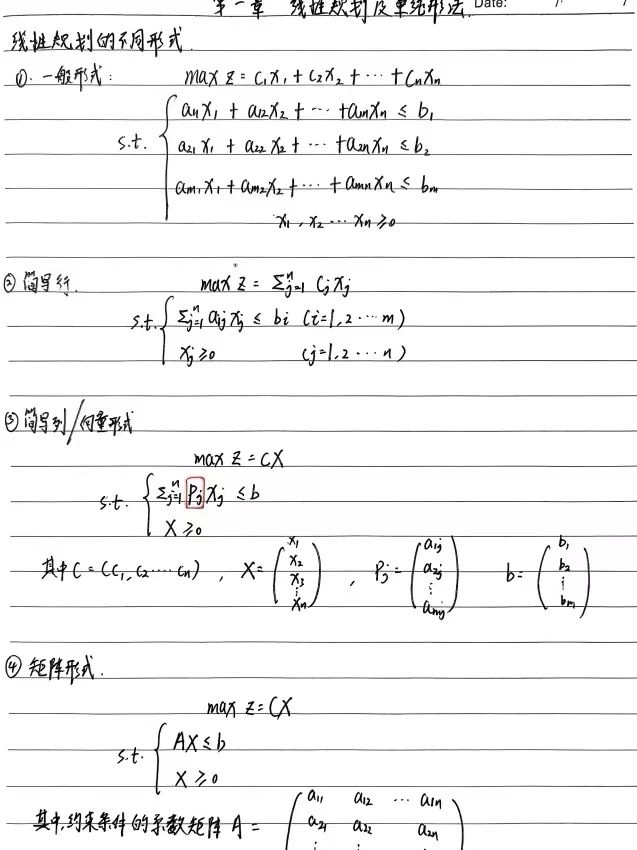 第一章 线性规划及单纯形法 Date:
线性规划的不同形式.
①. 一般形式: max z = c₁x₁ + c₂x₂ + ··· + cₙxₙ
s.t. { a₁₁x₁ + a₁₂x₂ + ··· + a₁ₙxₙ ≤ b₁
a₂₁x₁ + a₂₂x₂ + ··· + a₂ₙxₙ ≤ b₂
aₘ₁x₁ + aₘ₂x₂ + ··· + aₘₙxₙ ≤ bₘ
x₁, x₂ ··· xₙ ≥ 0
② 简写行. max z = Σⁿⱼ₌₁ cⱼxⱼ
s.t. { Σⁿⱼ₌₁ aᵢⱼxⱼ ≤ bᵢ (i=1,2 ··· m)
xⱼ ≥ 0 (j=1,2 ··· n)
③ 简写列/向量形式
max z = CX
s.t. { Σⁿⱼ₌₁ Pⱼxⱼ ≤ b
X ≥ 0
其中 C = (c₁, c₂ ···· cₙ) , X = (x₁ x₂ x₃ ⋮ xₙ) , Pⱼ = (a₁ⱼ a₂ⱼ ⋮ aₘⱼ) b = (b₁ b₂ ⋮ bₘ)
④ 矩阵形式.
max z = CX
s.t. { AX ≤ b
X ≥ 0
其中, 约束条件的系数矩阵 A = ( a₁₁ a₁₂ ··· a₁ₙ
a₂₁ a₂₂ a₂ₙ